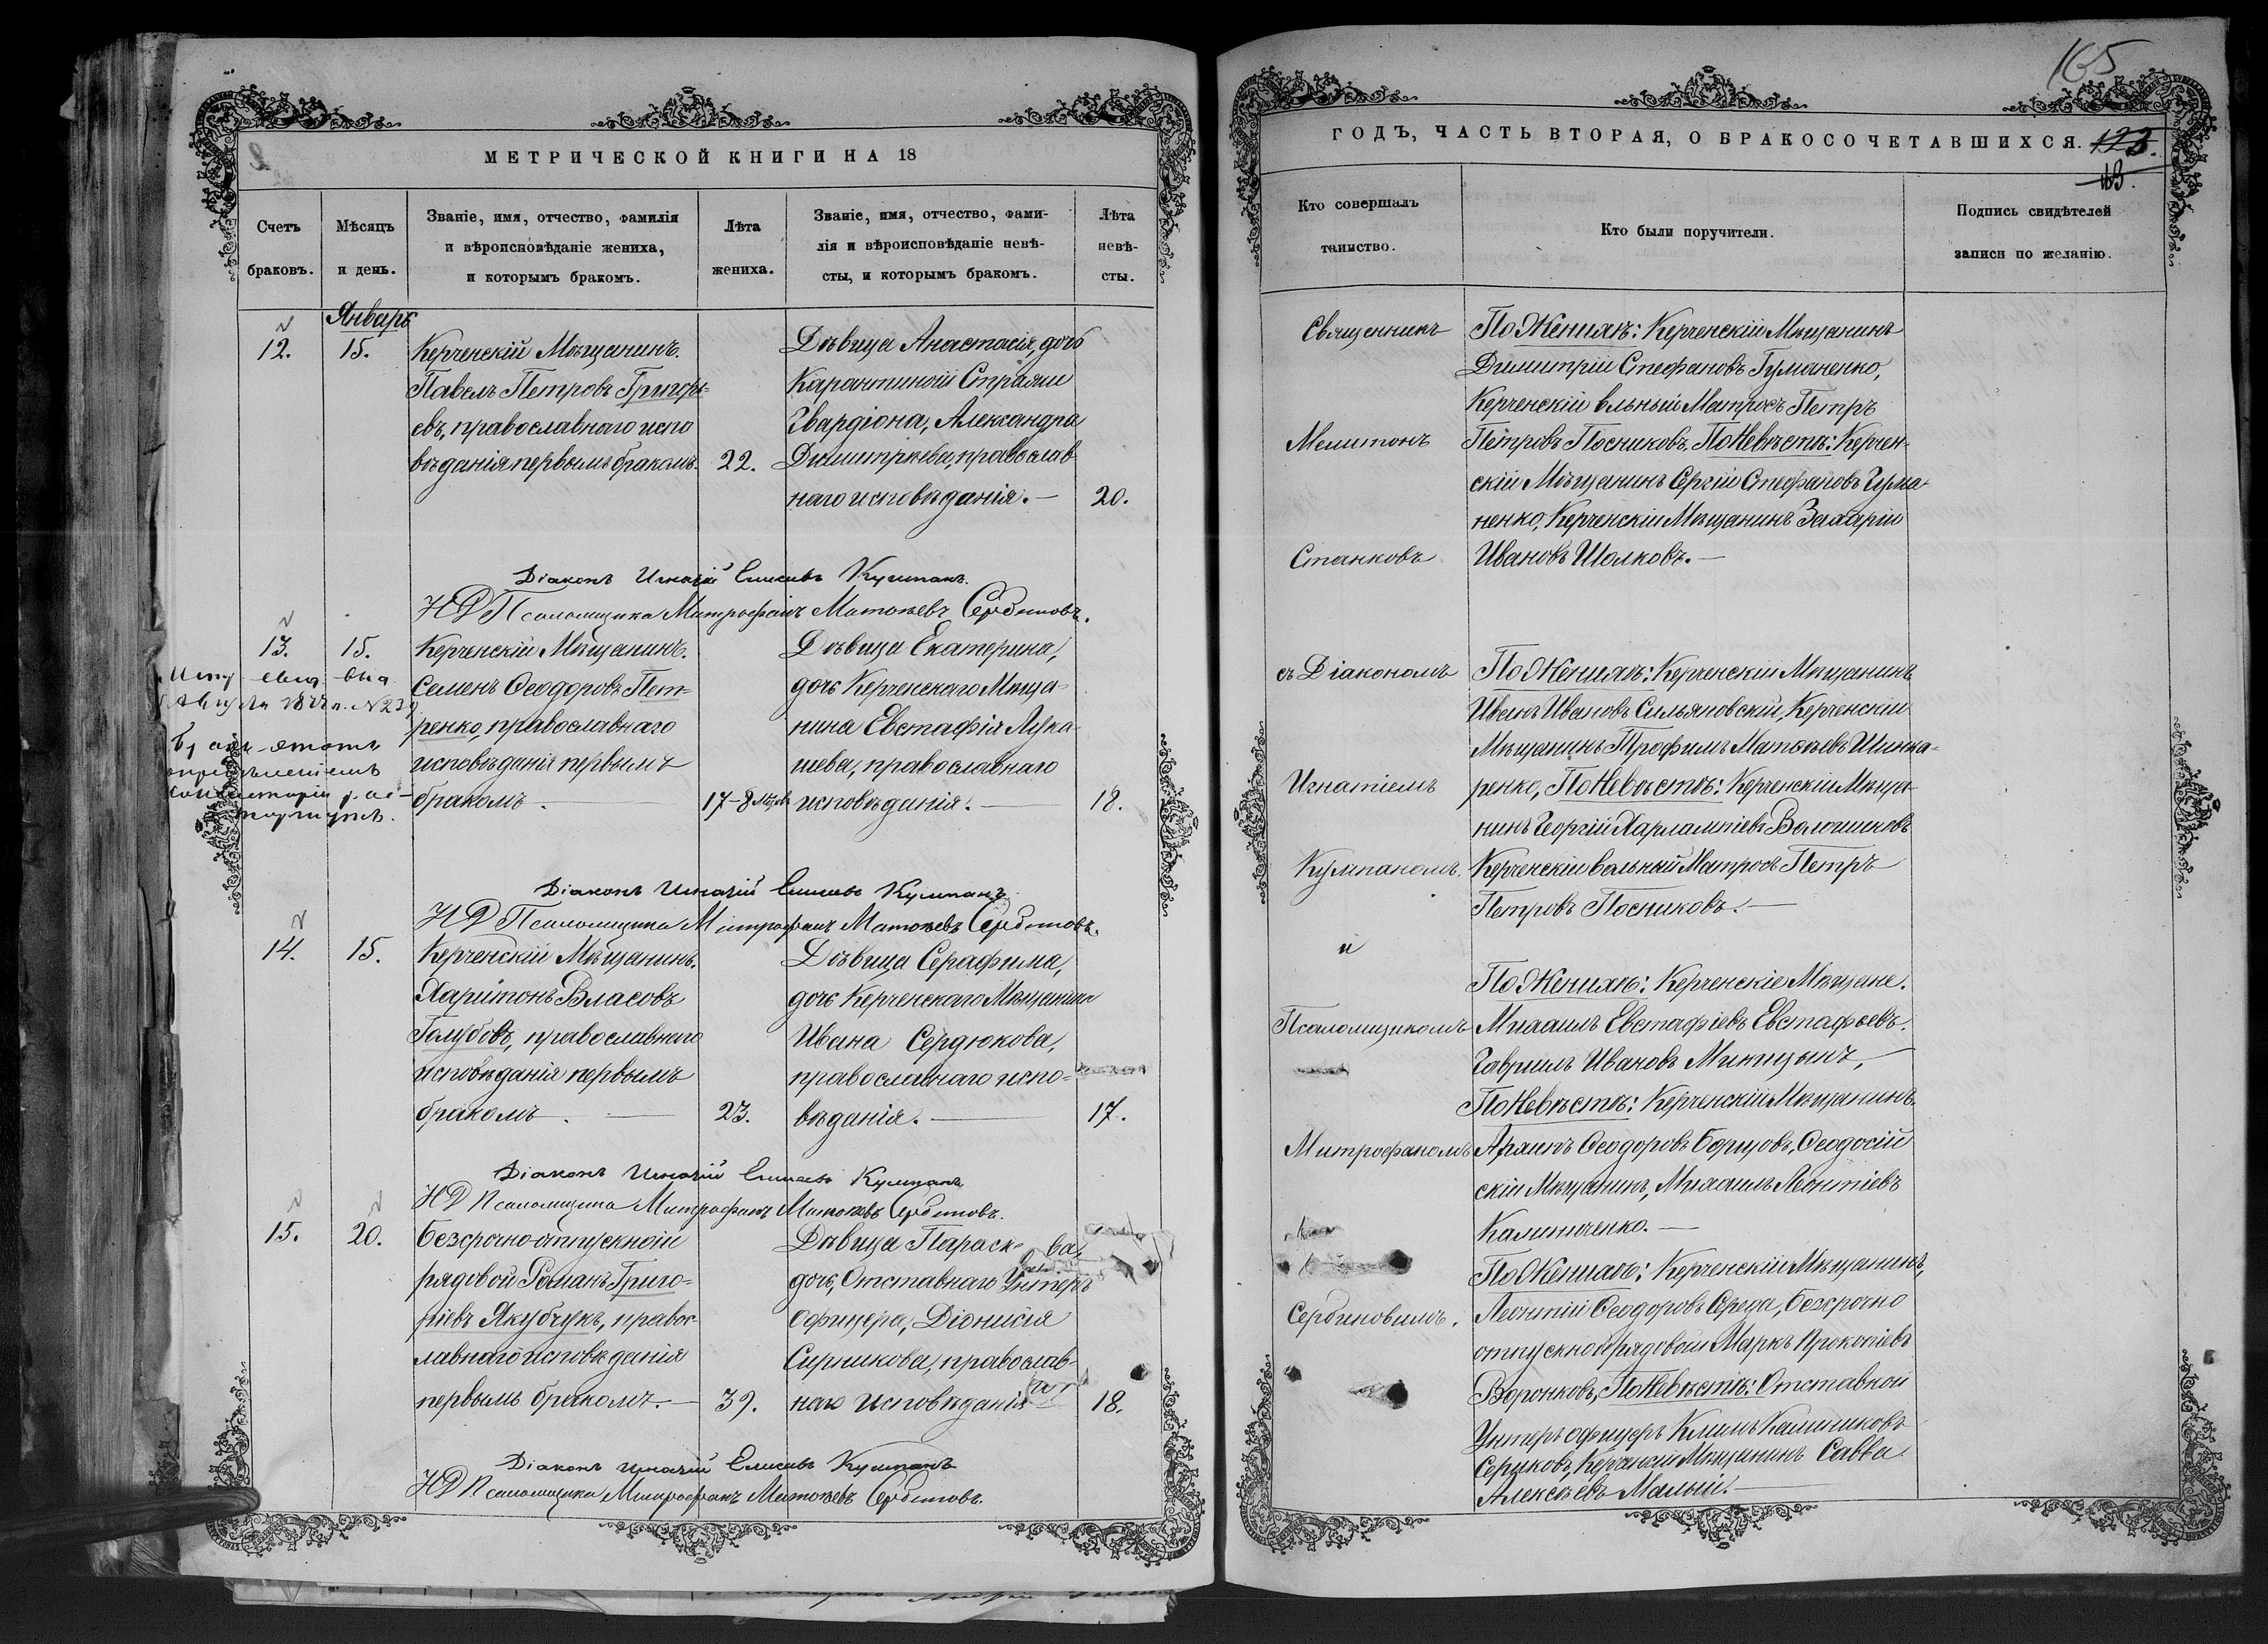 МЕТРИЧЕСКОЙ КНИГИ НА 18
Счетъ браковъ.
Мѣсяцъ и день.
Званіе, имя, отчество, фамилія
и вѣроисповѣданіе жениха,
и которымъ бракомъ.
Лѣта жениха.
Званіе, имя, отчество, фами-
лія и вѣроисповѣданіе невѣ-
сты, и которымъ бракомъ.
Лѣта невѣ-
сты.
Январь
12.
15.
Керченскій Мѣщанинъ
Павелъ Петровъ Григорь-
евъ, православнаго испо
вѣданія первымъ бракомъ.
22.
Дѣвица Анастасія, дочь
Карантинной Стражи
Гвардіона, Александра
Димитріева, православ
наго исповѣданія. —
20.
Діаконъ Игнатій Кулпакъ.
НД Псаломщика Митрофанъ Матвѣевъ Сербиновъ.
13.
15.
Керченскій Мѣщанинъ
Семенъ Ѳеодоровъ Пет-
ренко, православнаго
исповѣданія первымъ
бракомъ.
17-8 мѣс.
Дѣвица Екатерина,
дочь Керченскаго Мѣща-
нина Евстафія Лука-
шева, православнаго
исповѣданія. —
18.
Бракъ этотъ
опредѣленіемъ
Консисторіи рас-
торгнутъ.
Діаконъ Игнатій Кулпакъ
НД Псаломщика Митрофанъ Матвѣевъ Сербиновъ.
14.
15.
Керченскій Мѣщанинъ
Харитонъ Власовъ
Голубовъ, православнаго
исповѣданія первымъ
бракомъ. —
23.
Дѣвица Серафима,
дочь Керченскаго Мѣщанина
Ивана Сердюкова,
православнаго испо-
вѣданія. —
17.
Діаконъ Игнатій Кулпакъ
НД Псаломщика Митрофанъ Матвѣевъ Сербиновъ.
15.
20.
Безсрочно-отпускной
рядовой Романъ Григо-
ріевъ Якубчукъ, правос-
лавнаго исповѣданія
первымъ бракомъ. —
39.
Дѣвица Параск ва,
дочь, Отставнаго Унтеръ
Офицера, Діонисія
Сирникова, православ-
наго исповѣданія
18.
Діаконъ Игнатій Кулпакъ
НД Псаломщика Митрофанъ Матвѣевъ Сербиновъ.
165
ГОДЪ, ЧАСТЬ ВТОРАЯ, О БРАКОСОЧЕТАВШИХСЯ.
Кто совершалъ
таинство.
Кто были поручители.
Подпись свидѣтелей
записи по желанію.
Священникъ
Мелитонъ
Станковъ
съ Діакономъ
Игнатіемъ
Кулпакомъ.
и
Псаломщикомъ
Митрофаномъ
Сербиновымъ.
По Женихѣ: Керченскій Мѣщанинъ
Димитрій Стефановъ Гуманенко,
Керченскій вльный Матросъ Петръ
Петровъ Посниковъ. По Невѣстѣ: Керчен-
скій Мѣщанинъ Сергій Стефановъ Гума-
ненко, Керченскій Мѣщанинъ Захарій
Ивановъ Шалковъ. —
По Женихѣ: Керченскій Мѣщанинъ
Иванъ Ивановъ Сильяновскій, Керченскій
Мѣщанинъ Трофимъ Матвѣевъ Шинка-
ренко, По Невѣстѣ: Керченскій Мѣща-
нинъ Георгій Харлампіевъ Волошиновъ
Керченскій вольный Матросъ Петръ
Петровъ Посниковъ. —
По Женихѣ: Керченскіе Мѣщане.
Михаилъ Евстафіевъ Евстафьевъ.
Гавріилъ Ивановъ Микицынъ,
По Невѣстѣ: Керченскій Мѣщанинъ
Архипъ Ѳеодоровъ Борцовъ, Ѳеодосій
скій Мѣщанинъ, Михаилъ Леонтіевъ
Калиниченко. —
По Женихѣ: Керченскій Мѣщанинъ,
Леонтій Ѳеодоровъ Середа, безсрочно
отпускной рядовой Маркъ Прокопіевъ
Воронковъ, По Невѣстѣ: Отставной
Унтеръ офицеръ Климъ Калиниковъ
Сериковъ, Керченскій Мѣщанинъ Савва
Алексѣевъ Малый. —